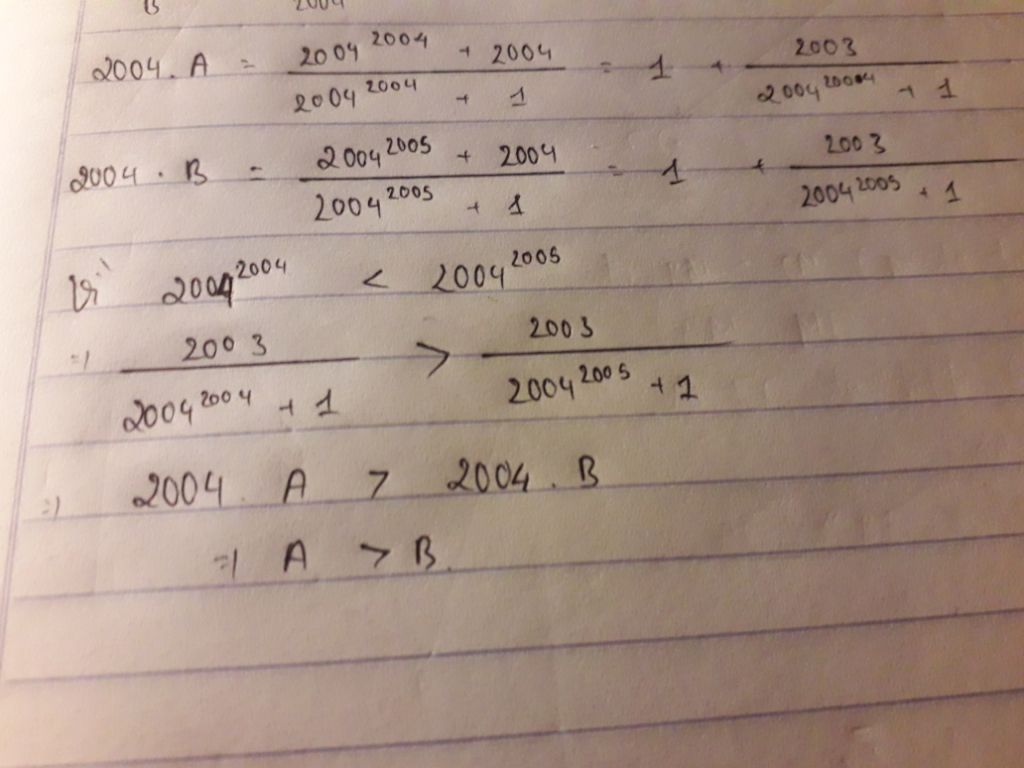 B 2004
2004 . A = (2004^2004 + 2004) / (2004^2004 + 1) = 1 + 2003 / (2004^2004 + 1)
2004 . B = (2004^2005 + 2004) / (2004^2005 + 1) = 1 + 2003 / (2004^2005 + 1)
Vì 2004^2004 < 2004^2005
=) 2003 / (2004^2004 + 1) > 2003 / (2004^2005 + 1)
=) 2004 . A > 2004 . B
=) A > B.